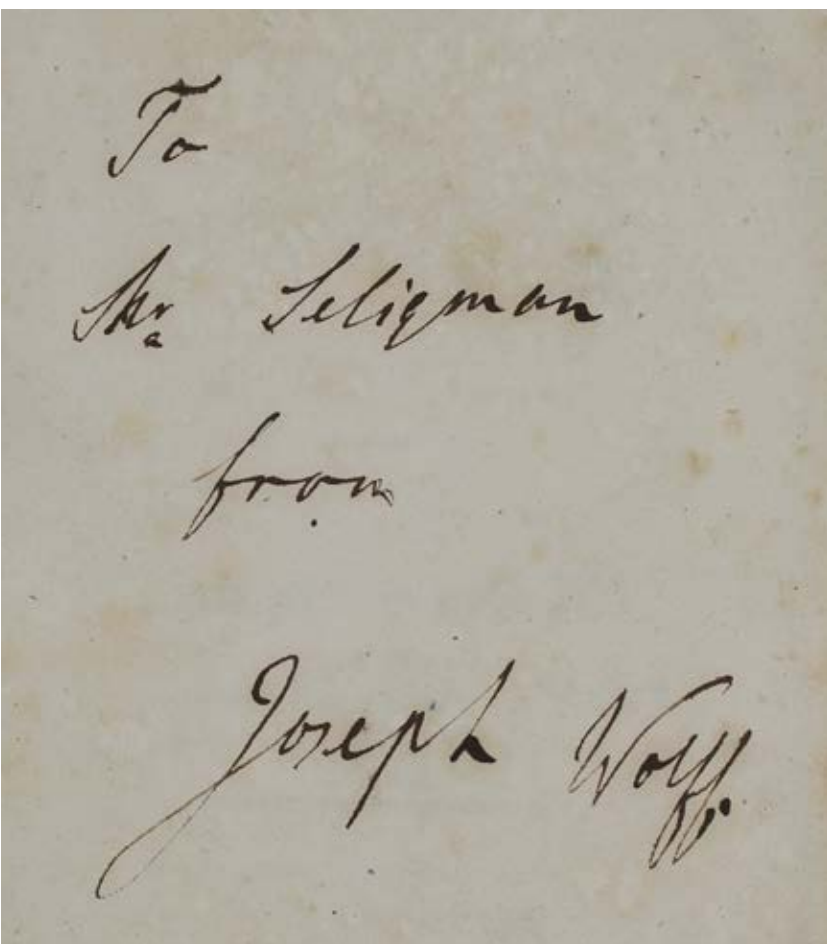 To
Mr Seligman
from
Joseph Wolff.